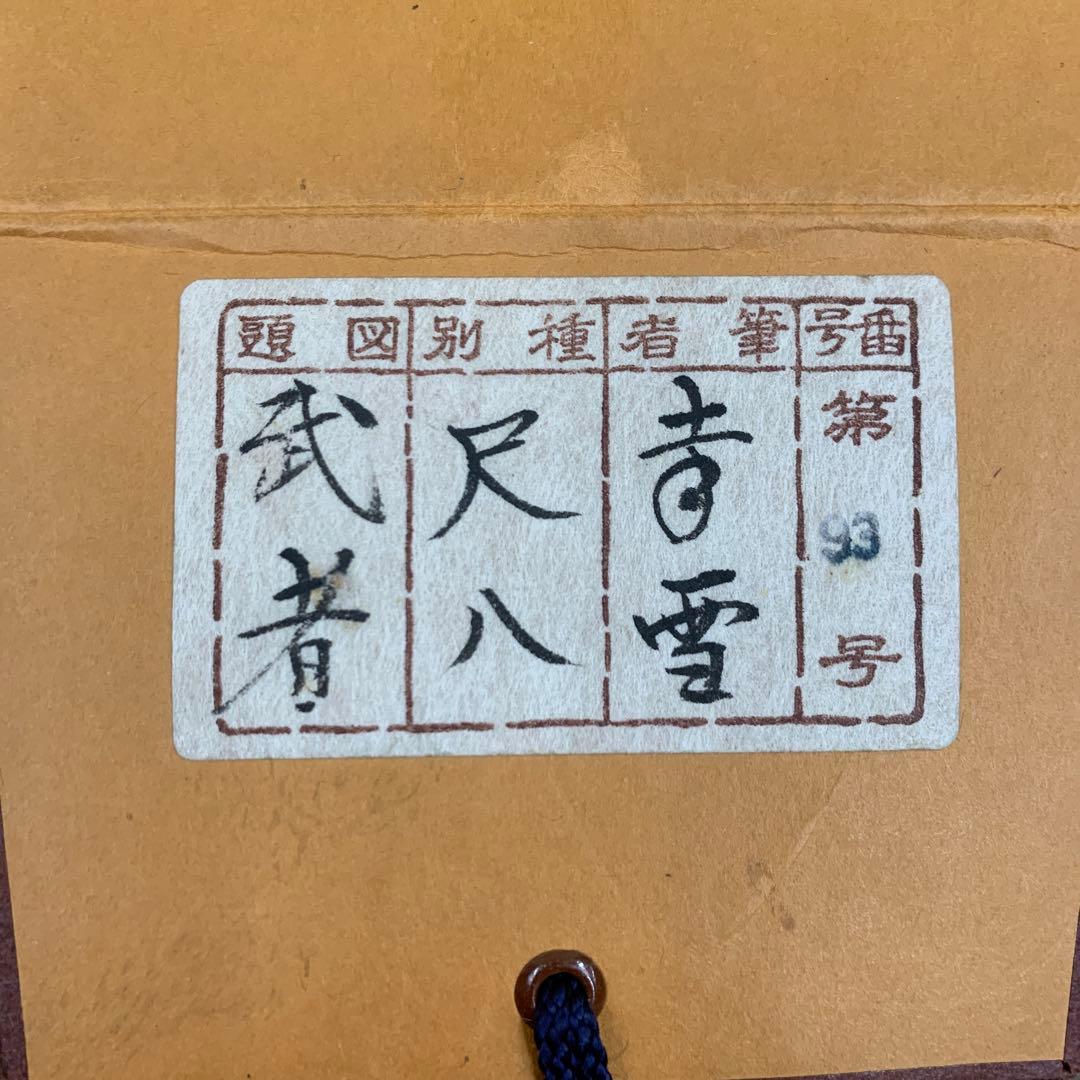 番号
第93号
筆者
幸雪
種別
尺八
図題
武者